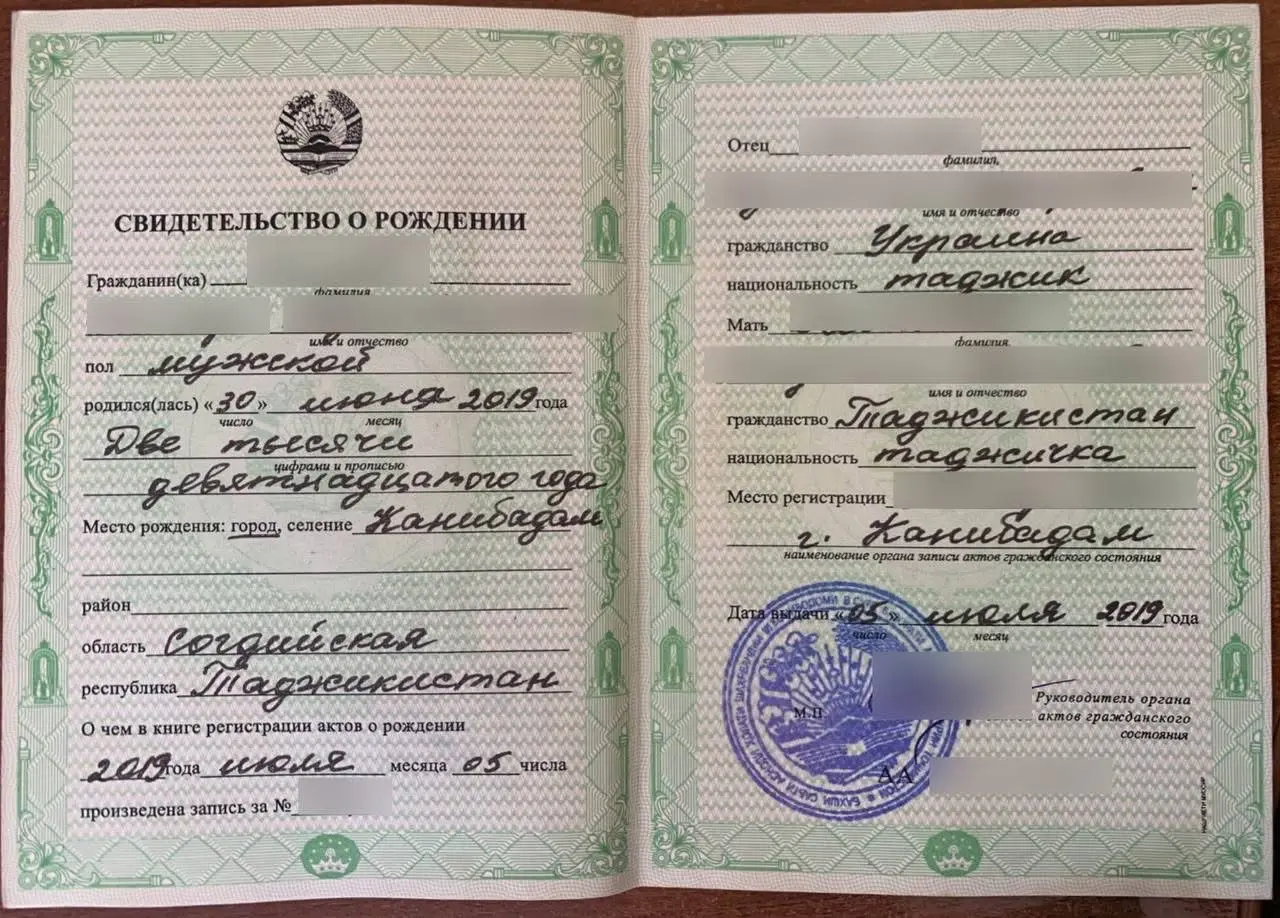 СВИДЕТЕЛЬСТВО О РОЖДЕНИИ
Гражданин(ка)
фамилия
имя и отчество
пол мужской
родился(лась) «30» июня 2019 года
число месяц
Две тысячи
цифрами и прописью
девятнадцатого года
Место рождения: город, селение Канибадам
район
область Согдийская
республика Таджикистан
О чем в книге регистрации актов о рождении
2019 года июля месяца 05 числа
произведена запись за №
Отец
фамилия,
имя и отчество
гражданство Украина
национальность таджик
Мать
фамилия
имя и отчество
гражданство Таджикистан
национальность таджичка
Место регистрации
г. Канибадам
наименование органа записи актов гражданского состояния
Дата выдачи «05» июля 2019 года
число месяц
М.П.
Руководитель органа
актов гражданского
состояния
АА